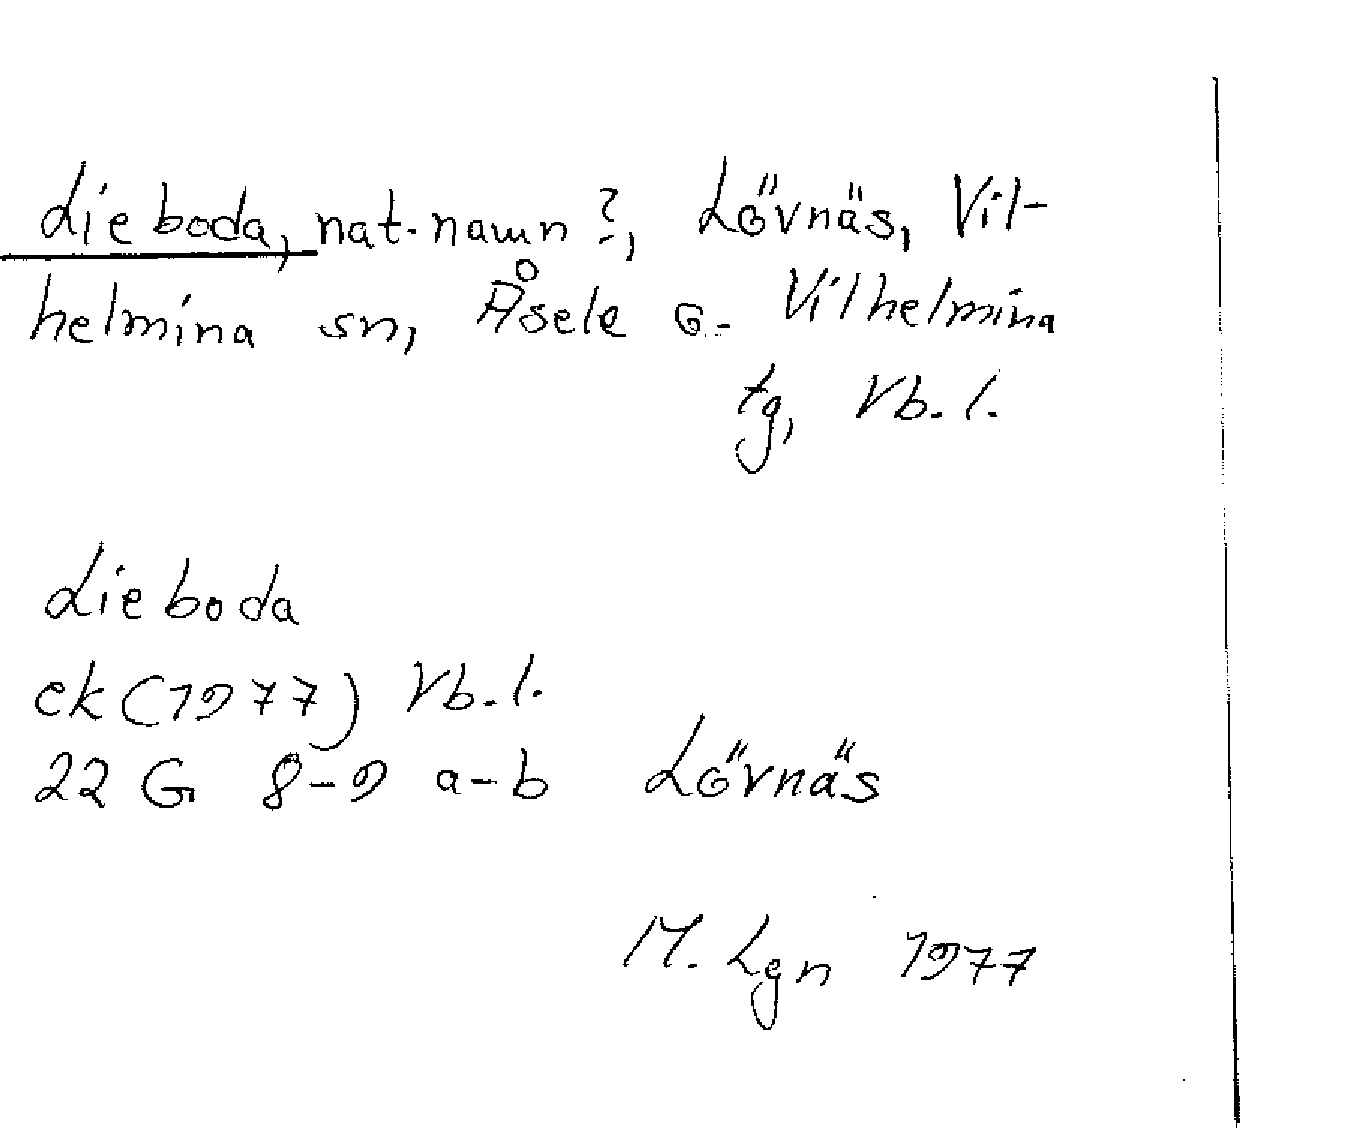 Lieboda, nat.namn?, Lövnäs, Vil-
helmina sn, Åsele o. Vilhelmina
tg, Vb. l.
Lieboda
ek (1977) Vb. l.
22 G 8-9 a-b Lövnäs
M. Lgn 1977